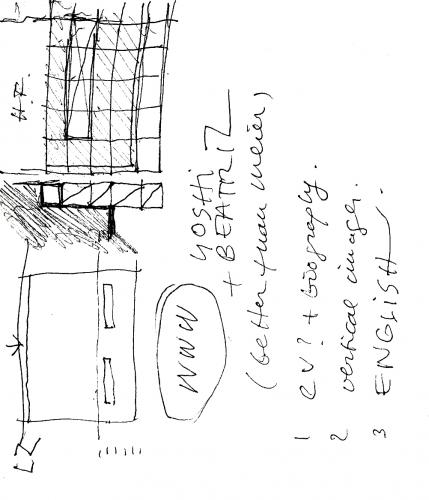 H.F.
YOSHI
+ BEATRIZ
(better than meier)
WWW
1 CV? + biography.
2 vertical images.
3 ENGLISH